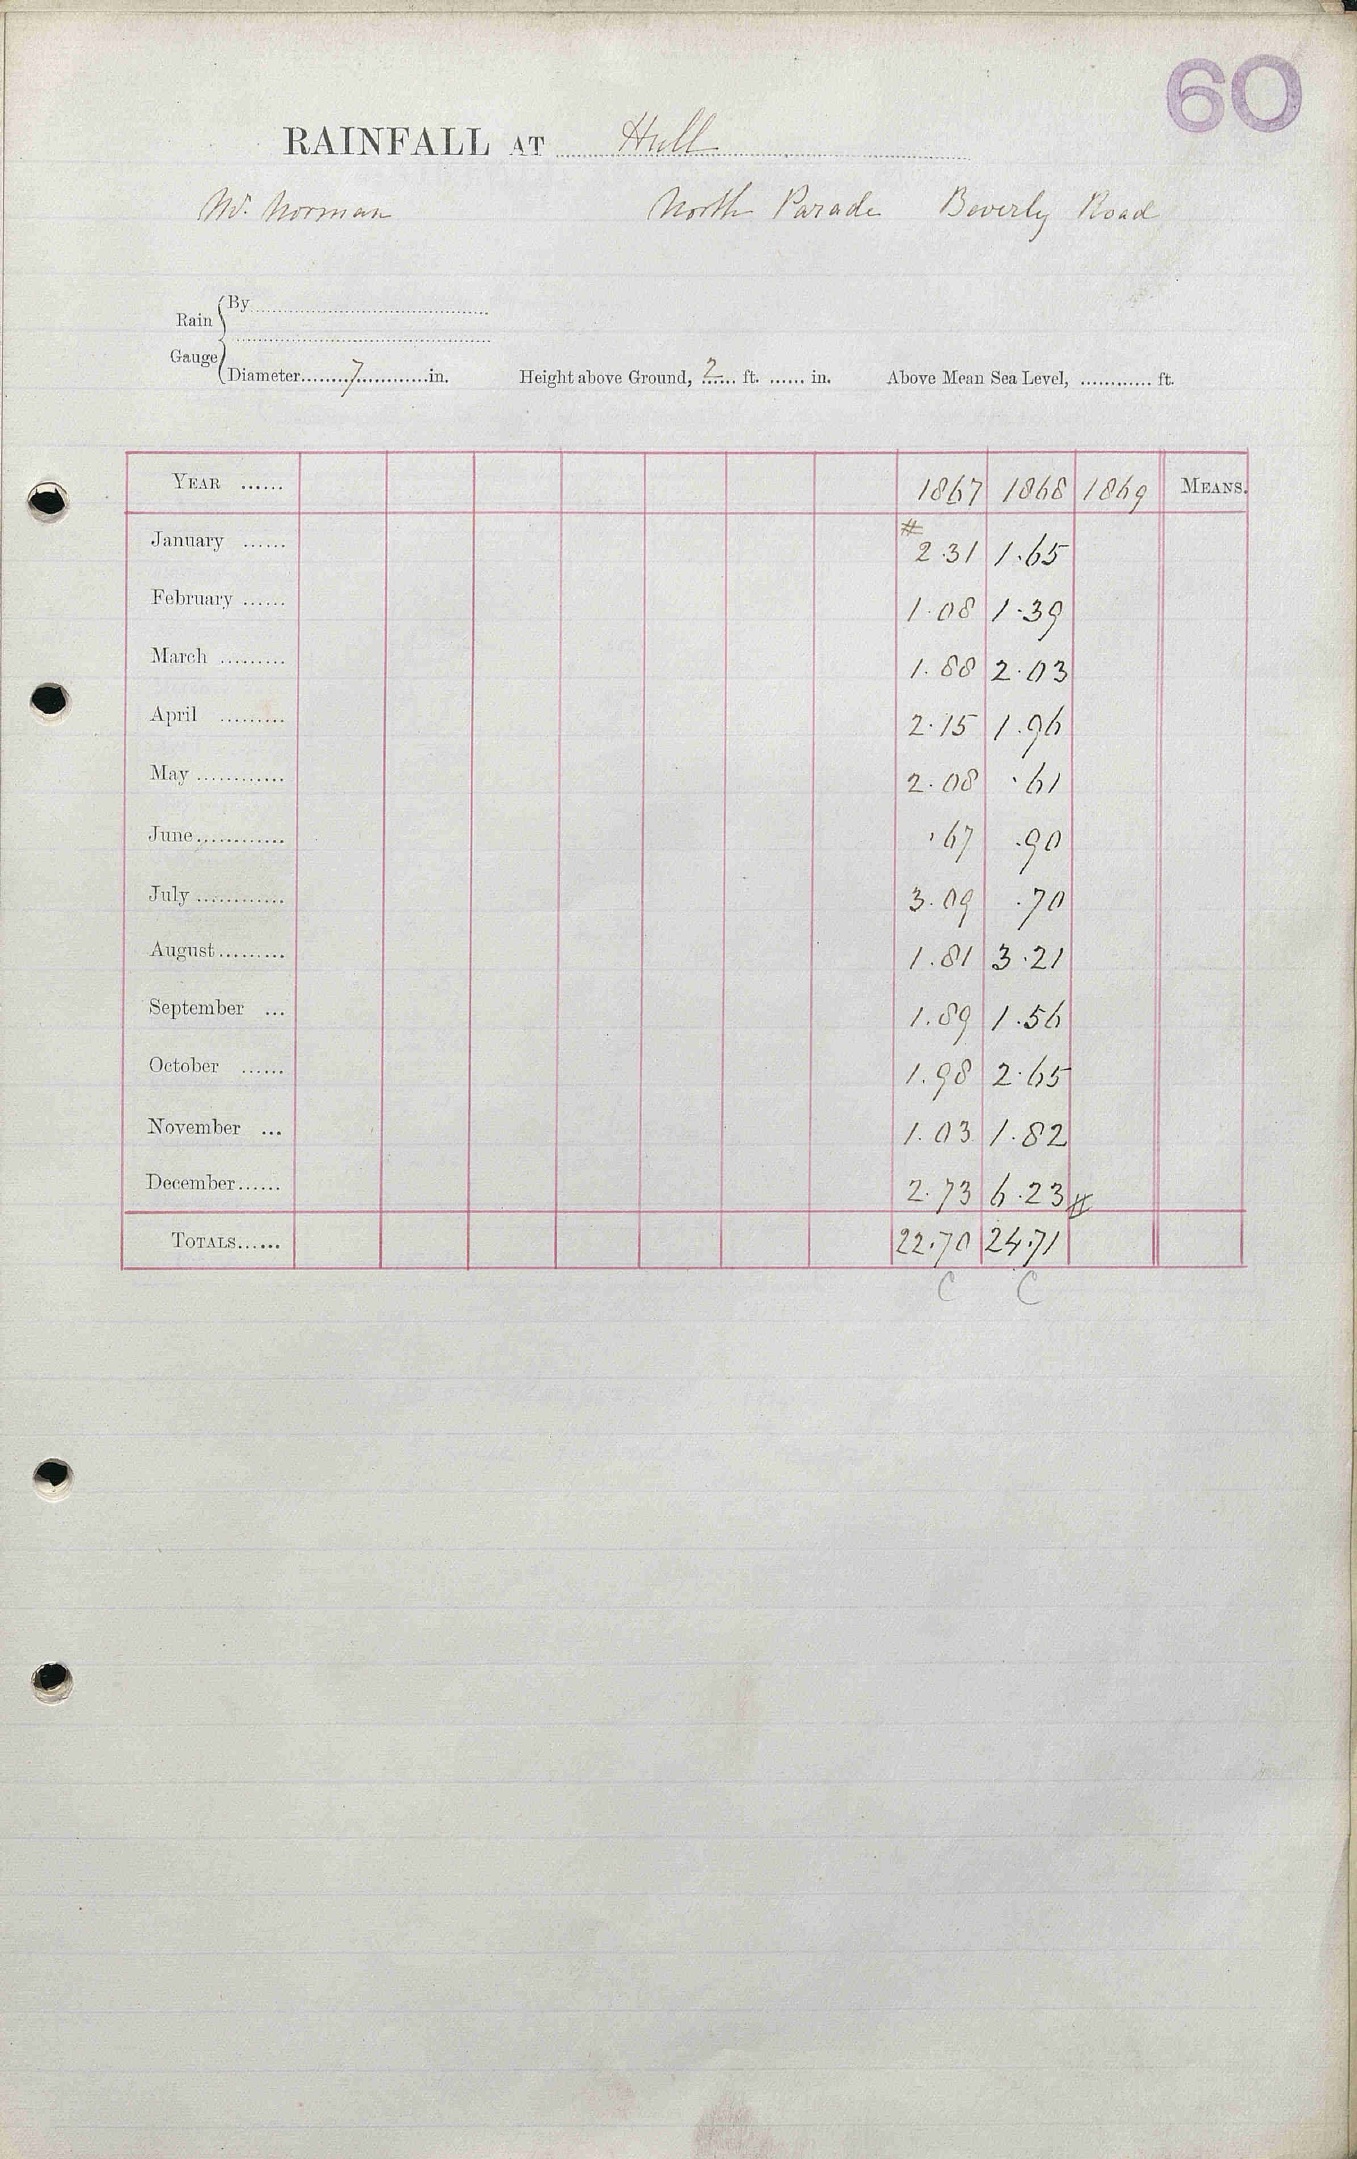 60
RAINFALL AT Hull
Mr. Norman North Parade Beverly Road
Rain Gauge
By
Diameter 7 in. Height above Ground, 2 ft. in. Above Mean Sea Level, ft.
YEAR 1867 1868 1869 MEANS.
January # 2.31 1.65
February 1.08 1.39
March 1.88 2.03
April 2.15 1.96
May 2.08 .61
June .67 .90
July 3.09 .70
August 1.81 3.21
September 1.89 1.56
October 1.98 2.65
November 1.03 1.82
December 2.73 6.23 #
TOTALS 22.70 24.71
C C